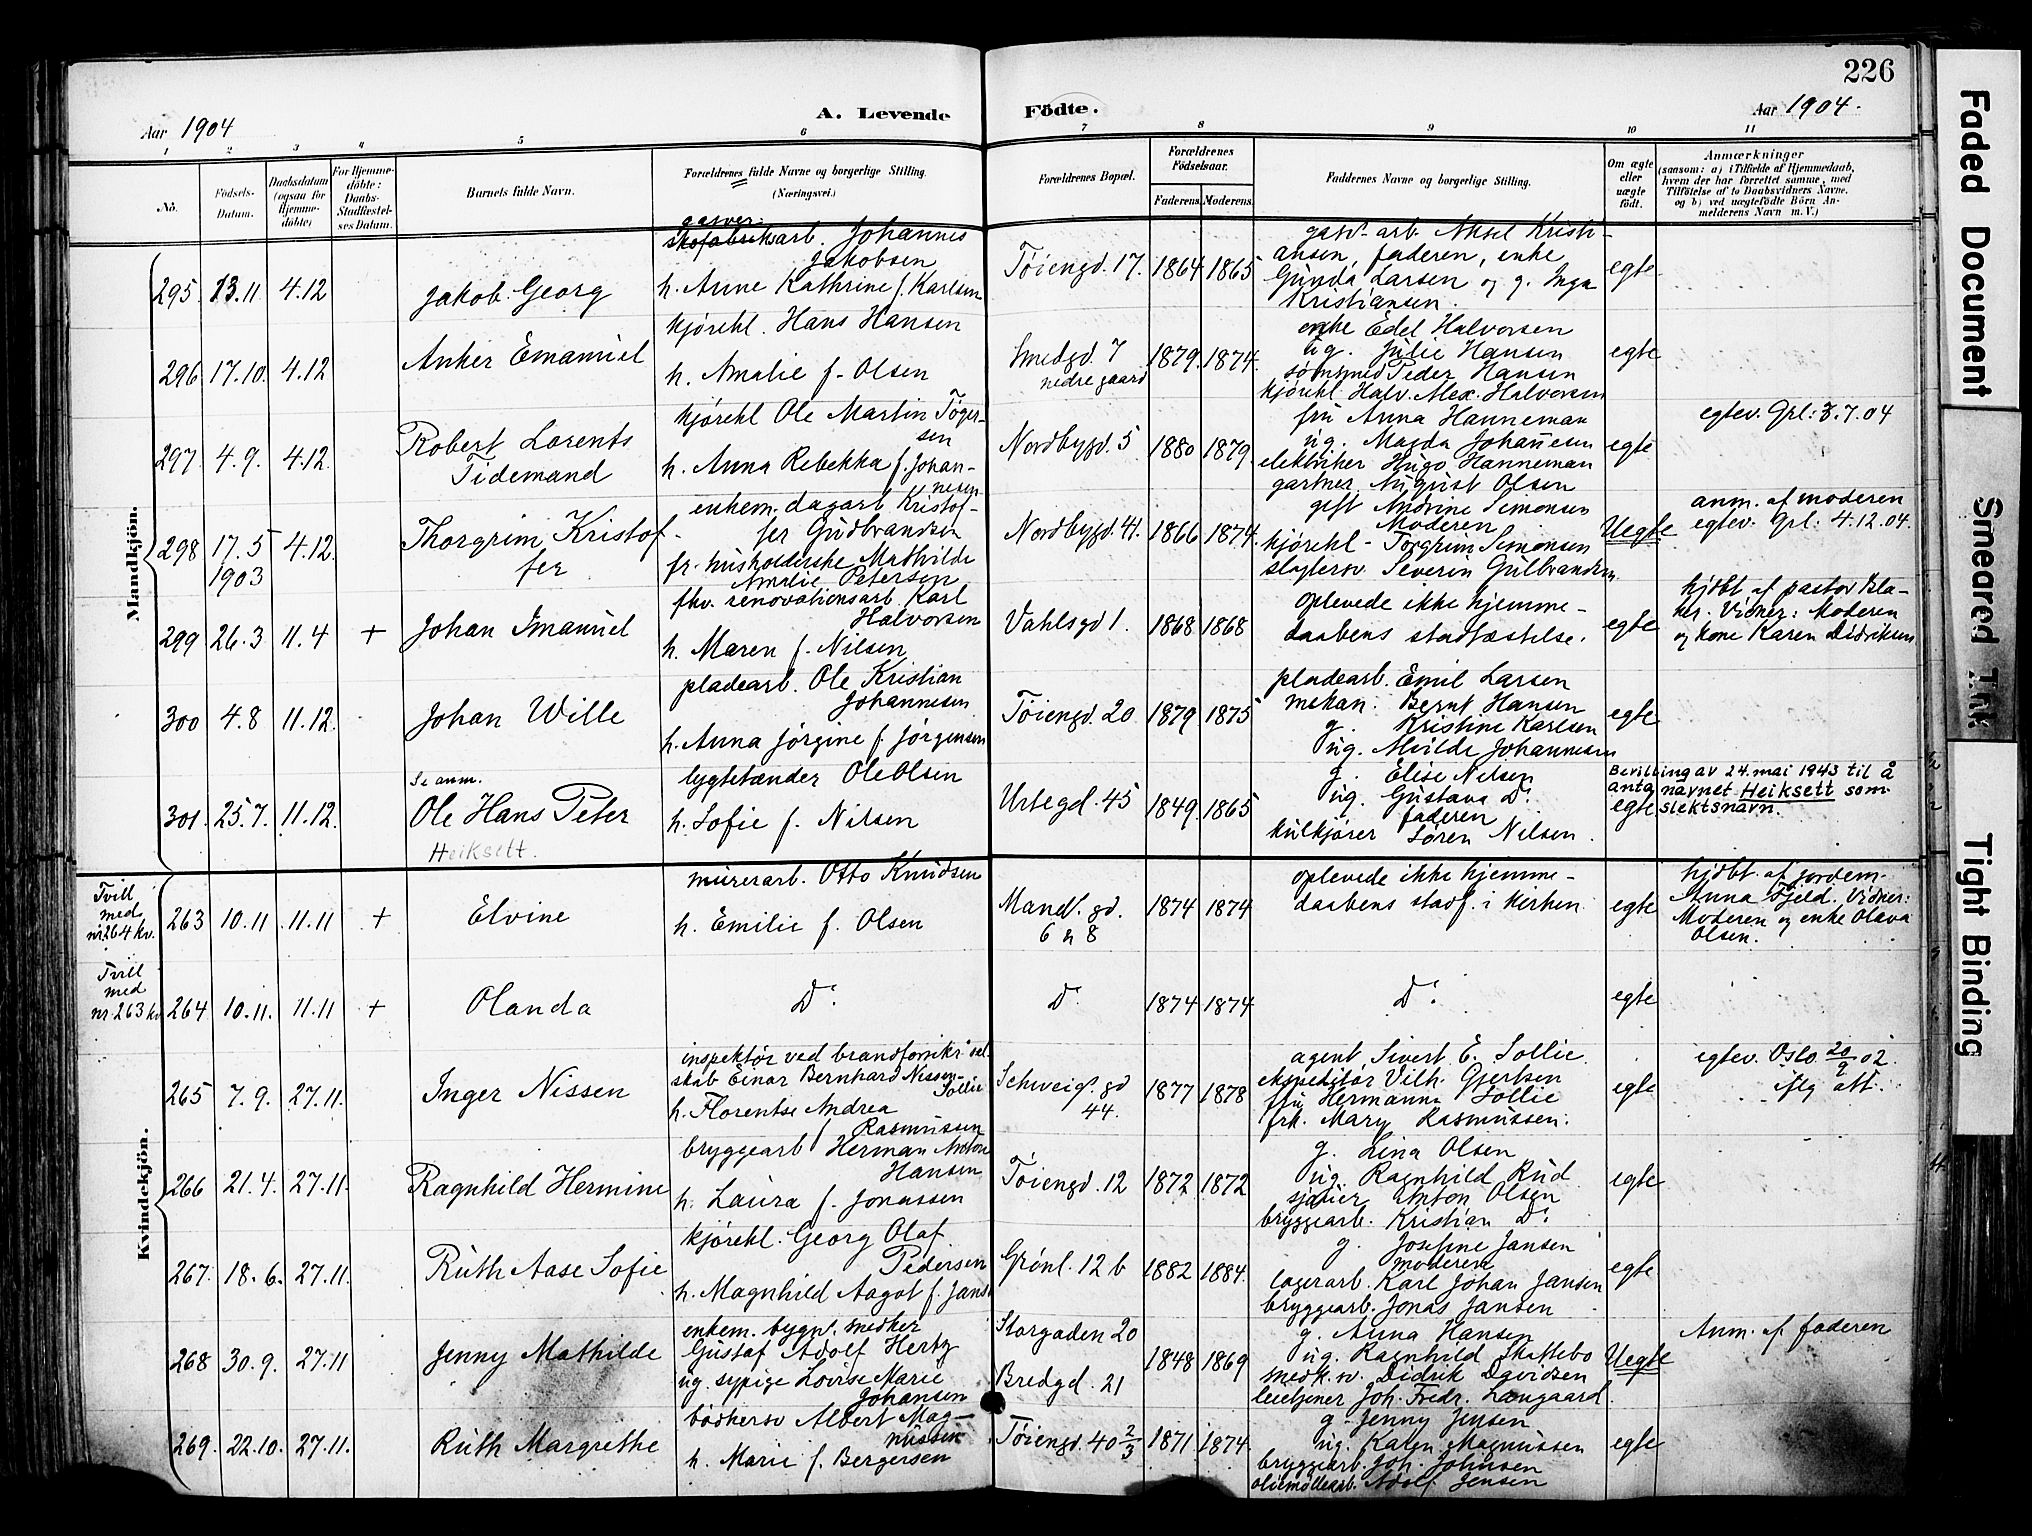 226
Aar 1904
A. Levende
Födte.
Aar 1904.
1 2 3 4 5 6 7 8 9 10 11
No.
Födsels-Datum.
Daabsdatum (ogsaa for Hjemme-döbte)
For Hjemme-döbte: Daabs-Stadfæstel-ses Datum.
Barnets fulde Navn.
Forældrenes fulde Navne og borgerlige Stilling. (Næringsvei.)
Forældrenes Bopæl.
Forældrenes Födselsaar.
Faderens. Moderens.
Faddernes Navne og borgerlige Stilling.
Om ægte eller uægte födt.
Anmærkninger
(saasom: a) i Tilfælde af Hjemmedaab, hvem der har forrettet samme, med Tilföielse af to Daabsvidners Navne, og b) ved uægtefödte Börn An-melderens Navn m. V.)
Mandkjön.
295. 23.11 4.12
Jakob Georg
gasver.
skofabrikarb. Johannes
Jakobsen
h. Anne Kathrine f. Karlsen
Töiengd. 17. 1864 1865
gasv. arb. Aksel Kristi-
ansen, faderen, enke
Gunda Larsen og g. Inga
Kristiansen.
egte
296 17.10. 4.12
Anker Emanuel
kjørekl. Hans Hansen
h. Amalie f. Olsen
Smedgd. 7
nedre gaard
1879. 1874.
enke Edel Halvorsen
ug. Julie Hansen
Peder Hansen
kjørekl. Halv. Alex. Halvorsen
egte
297. 4.9. 4.12.
Robert Lorents
Tidemand
kjørekl Ole Martin Töger-
sen
h. Anna Rebekka f. Johan-
nesen
Nordbygd. 5 1880 1879.
fru Anna Hanneman
ug. Magda Johannesen
elektriker Hugo Hanneman
gartner August Olsen
egte
egtev. Grl: 3.7.04
298 17.5 4.12.
1903
Thorgrim Kristof-
fer
enkem. dagarb Kristof-
fer Gudbrandsen
fr. husholderske Mathilde
Amalie Petersen
Nordbygd. 41. 1866 1874.
gift Andrine Simonsen
Moderen
kjørekl. Torgrim Simonsen
slagtersv. Severin Gulbrandsen
Uegte
anm. af moderen
egtev. Grl: 4.12.04.
299 26.3 11.4 +
Johan Imanuel
fhv. renovationsarb. Karl
Halvorsen
h. Maren f. Nilsen
Vahlsgd 1. 1868 1868
oplevede ikke hjemme-
daabens stadfæstelse.
egte
hjdbt af pastor Bla-
ker. Vidner: Moderen
og kone Karen Didriksen
300 4.8 11.12.
Johan Wille
pladearb. Ole Kristian
Johannesen
h. Anna Jörgine f. Jörgensen
Töiengd. 20 1879 1875
pladearb. Emil Larsen
mekan. Bernt Hansen
g. Kristine Karlsen
ug. Johannesen
egte
301. 25.7. 11.12.
Se anm.
Ole Hans Peter
Heiksett.
lygtetænder Ole Olsen
h. Sofie f. Nilsen
Urtegd. 45 1849 1865
g. Elise Nilsen
ug. Gustava Do.
faderen
kulkjører Søren Nilsen.
egte
Bevilling av 24. mai 1943 til å
anta navnet Heiksett som
slektsnavn.
Kvindekjön.
Tvill
med
nr. 264 kv.
263 10.11 11.11 +
Elvine
murerarb. Otto Knudsen
h. Emilie f. Olsen
Mand. gd.
6 & 8
1874 1874
oplevede ikke hjemme-
daabens stadf. i kirken
egte
hjdbt. af jordem.
Anna Fjeld. Vidner:
Moderen og enke Olava
Olsen.
Tvill
med
nr. 263 kv
264 10.11. 11.11 +
Olanda
Do. Do. 1874 1874. Do.
egte
265 7.9. 27.11.
Inger Nissen
inspektør ved brandforsikr. sel.
skab Einar Bernhard Nissen-
Sollie
h. Florentse Andrea
f. Rasmussen
Schweig. gd
44.
1877 1878
agent Sivert E. Sollie
ekspeditør Vilh. Gjertsen
fru Hermanna Sollie
frk. Mary Rasmussen.
egte
egtev. Oslo 20/9 02.
iflg att.
266 21.4. 27.11.
Ragnhild Hermine
bryggearb Herman Anton
Hansen
h. Laura f. Jonassen
Töiengd. 12 1872 1872
g. Lina Olsen
ug. Ragnhild Rud
sjauer Anton Olsen
bryggearb. Kristian Do.
egte
267. 18.6. 27.11.
Ruth Aase Sofie
kjørekl. Georg Olaf
Pedersen
h. Magnhild Aagot f. Jans
Grönl. 12 b 1882 1884.
g. Josefine Jansen
moderen
lagerarb. Karl Johan Jansen
bryggearb. Jonas Jansen
egte
268 30.9. 27.11
Jenny Mathilde
enkem. bygn. snedker
Gustaf Adolf Hertz
ug. sypige Lovise Marie
Johansen
Storgaden 20
Bredgd. 21
1848 1869
g. Anna Hansen
ug. Ragnhild Skattebo
snedk. sv. Didrik Davidsen
Joh. Fredr. Langaard.
Uegte
Anm. af faderen
269. 22.10. 27.11.
Ruth Margrethe
bödkersv Albert Mag-
nussen
h. Marie f. Bergersen
Töiengd. 40 2/3 1871 1874.
g. Jenny Jensen
ug. Karen Magnussen
bryggearb. Joh. Johnsen
oliemöllearb. Adolf Jensen
egte
Faded Document
Smeared Ink
Tight Binding